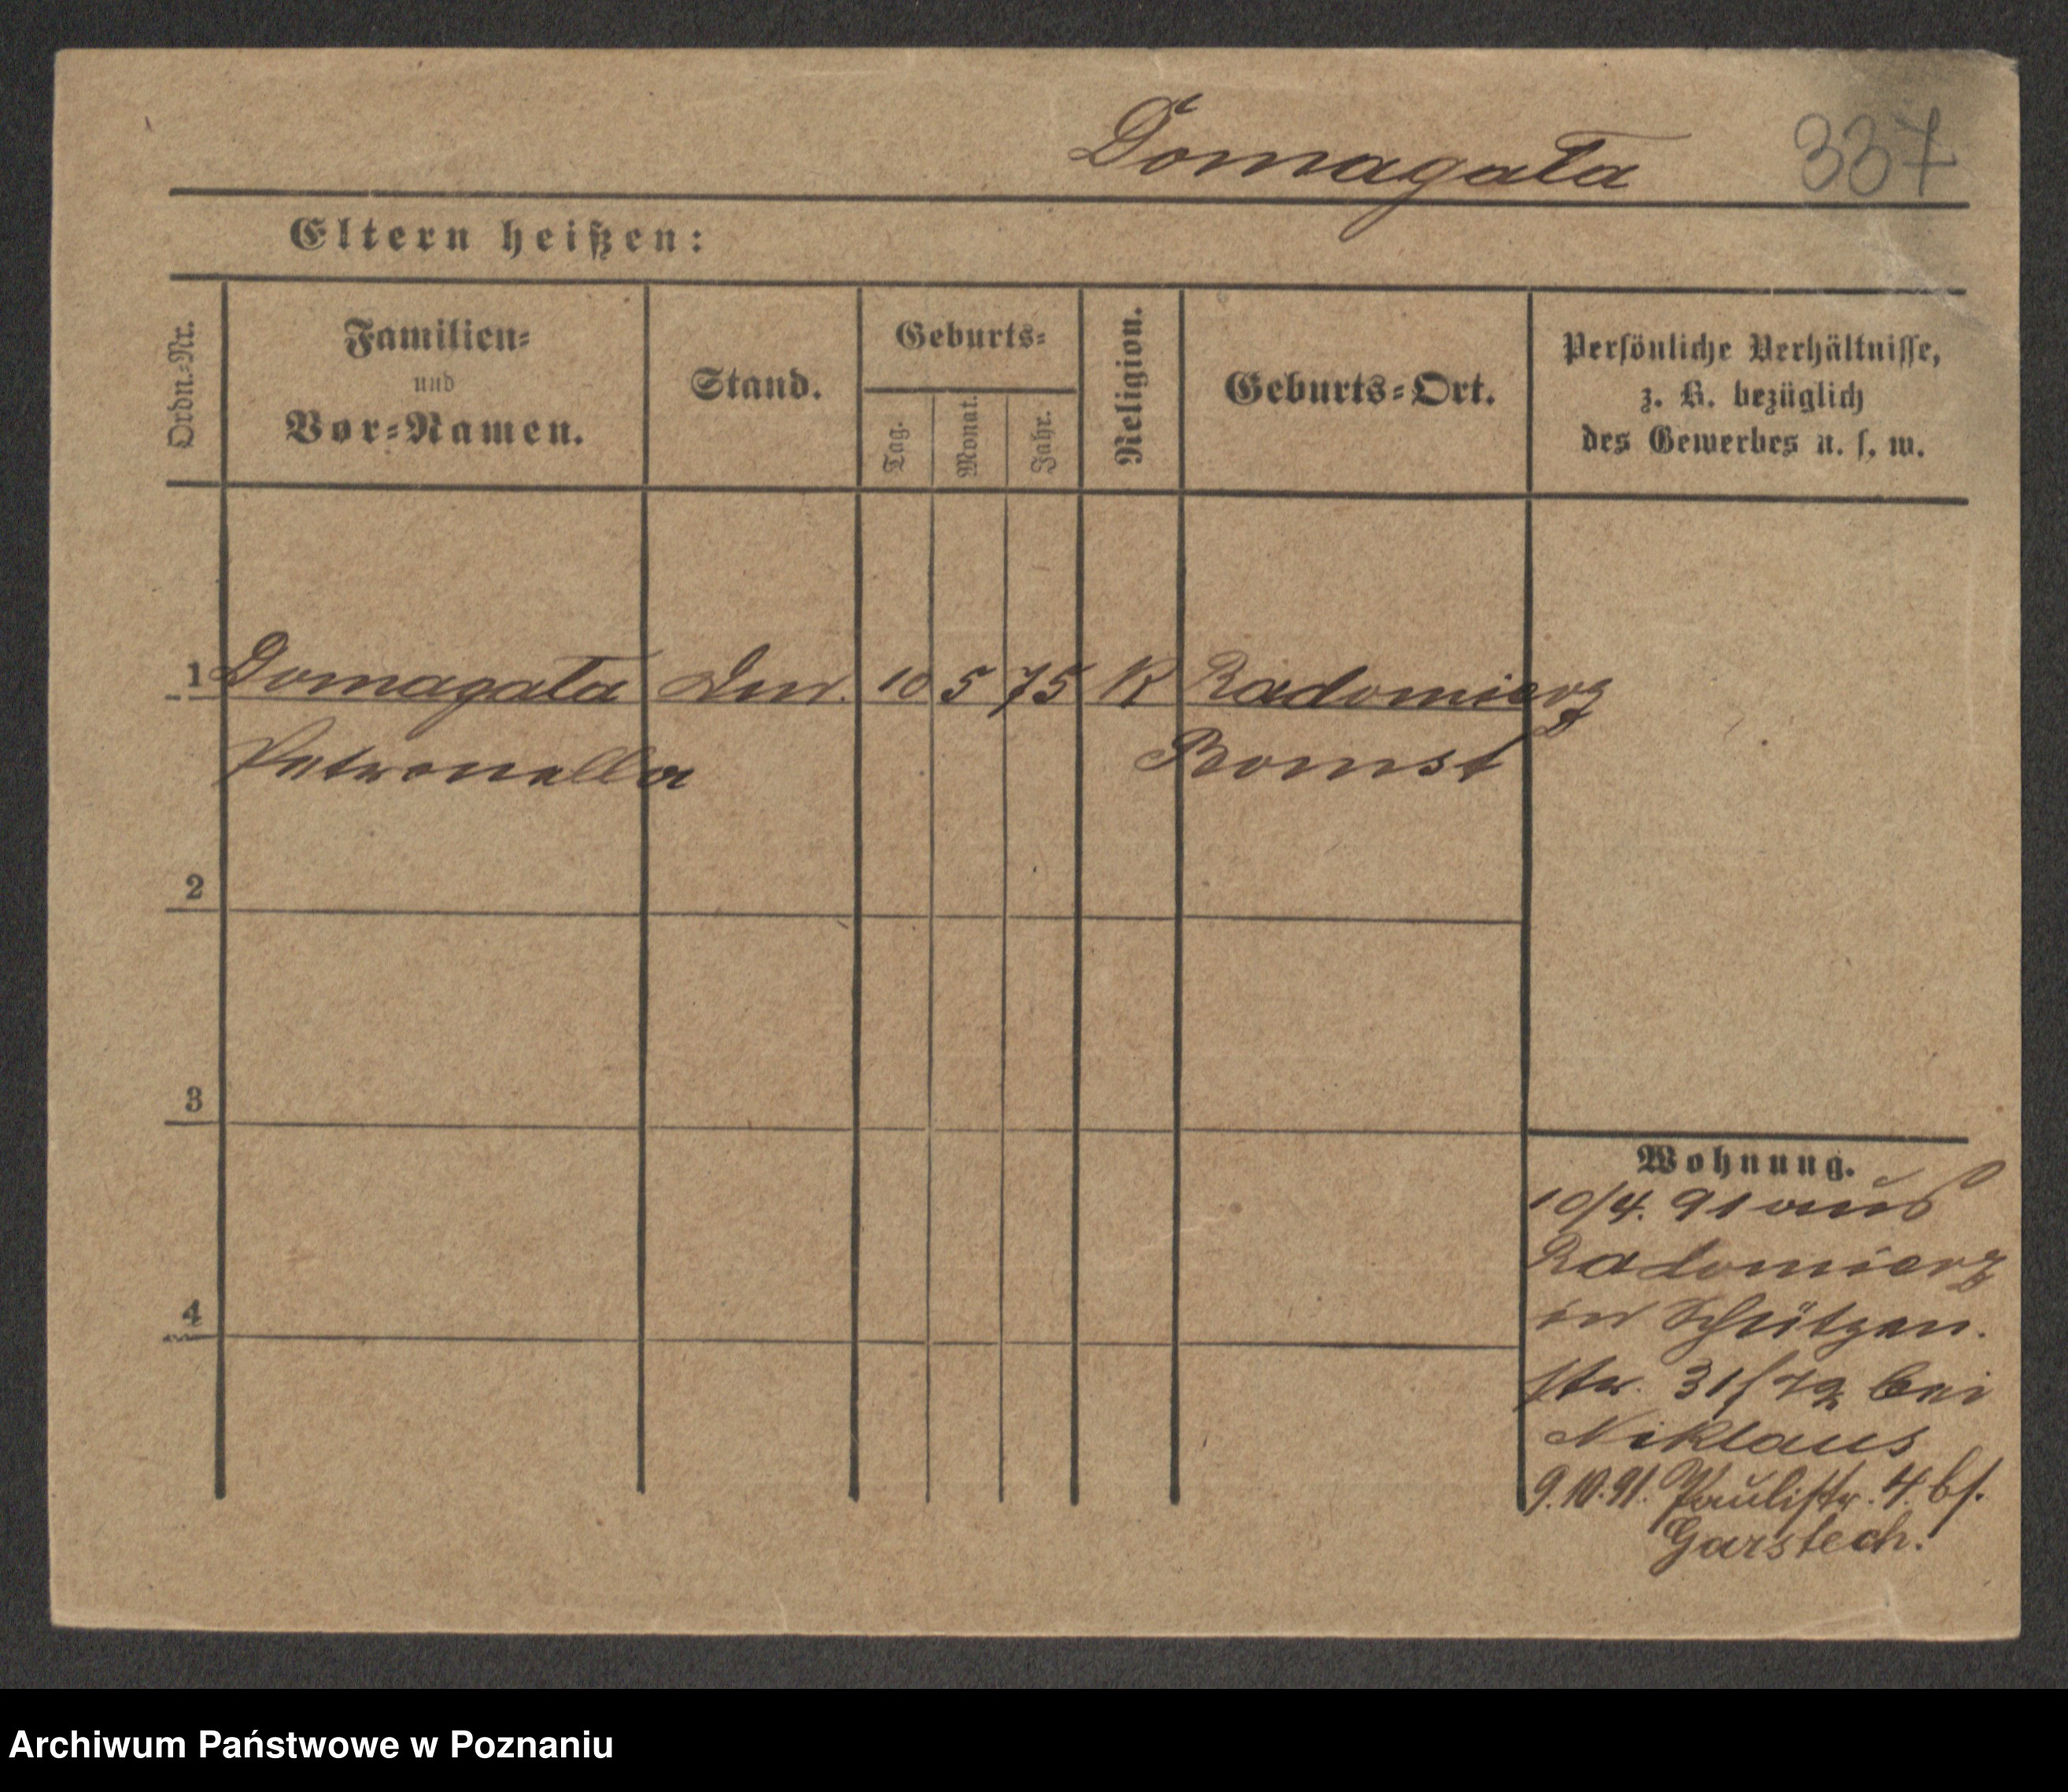 Domagala
337
Eltern heißen:
Ordn.-Nr.
Familien-
und
Vor-Namen.
Stand.
Geburts-
Tag.
Monat.
Jahr.
Religion.
Geburts-Ort.
Persönliche Verhältnisse,
z. B. bezüglich
des Gewerbes u. s. w.
1 Domagala 10 5 75 K Radomierz
Petronella Bomst
2
3
4
Wohnung.
10/4. 91 aus
Radomierz
in Schützen.
str. 31 bei
Niklaus
9.10.91. Paulistr. 4. bf.
Garstech.
Archiwum Państwowe w Poznaniu